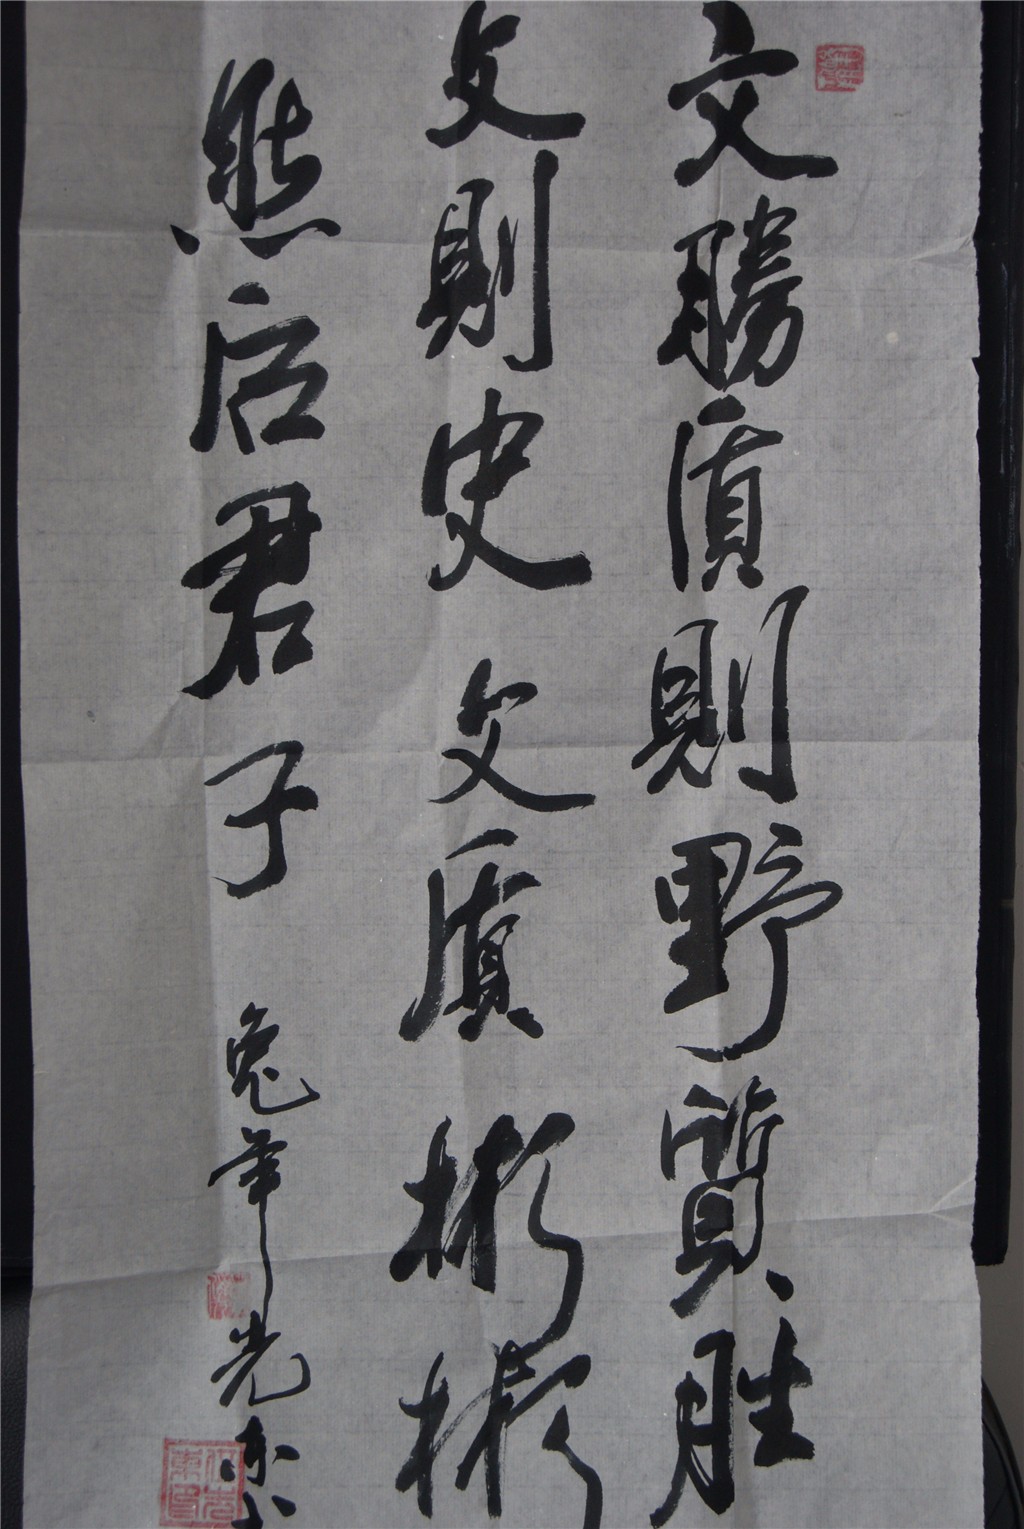 文勝質則野質胜
文則史文質彬彬
然后君子 兔年光东